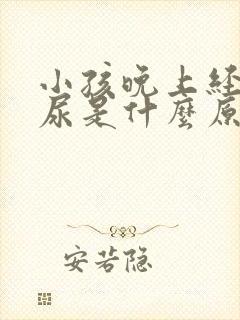 小孩晚上经
尿是什麼原
安若隐